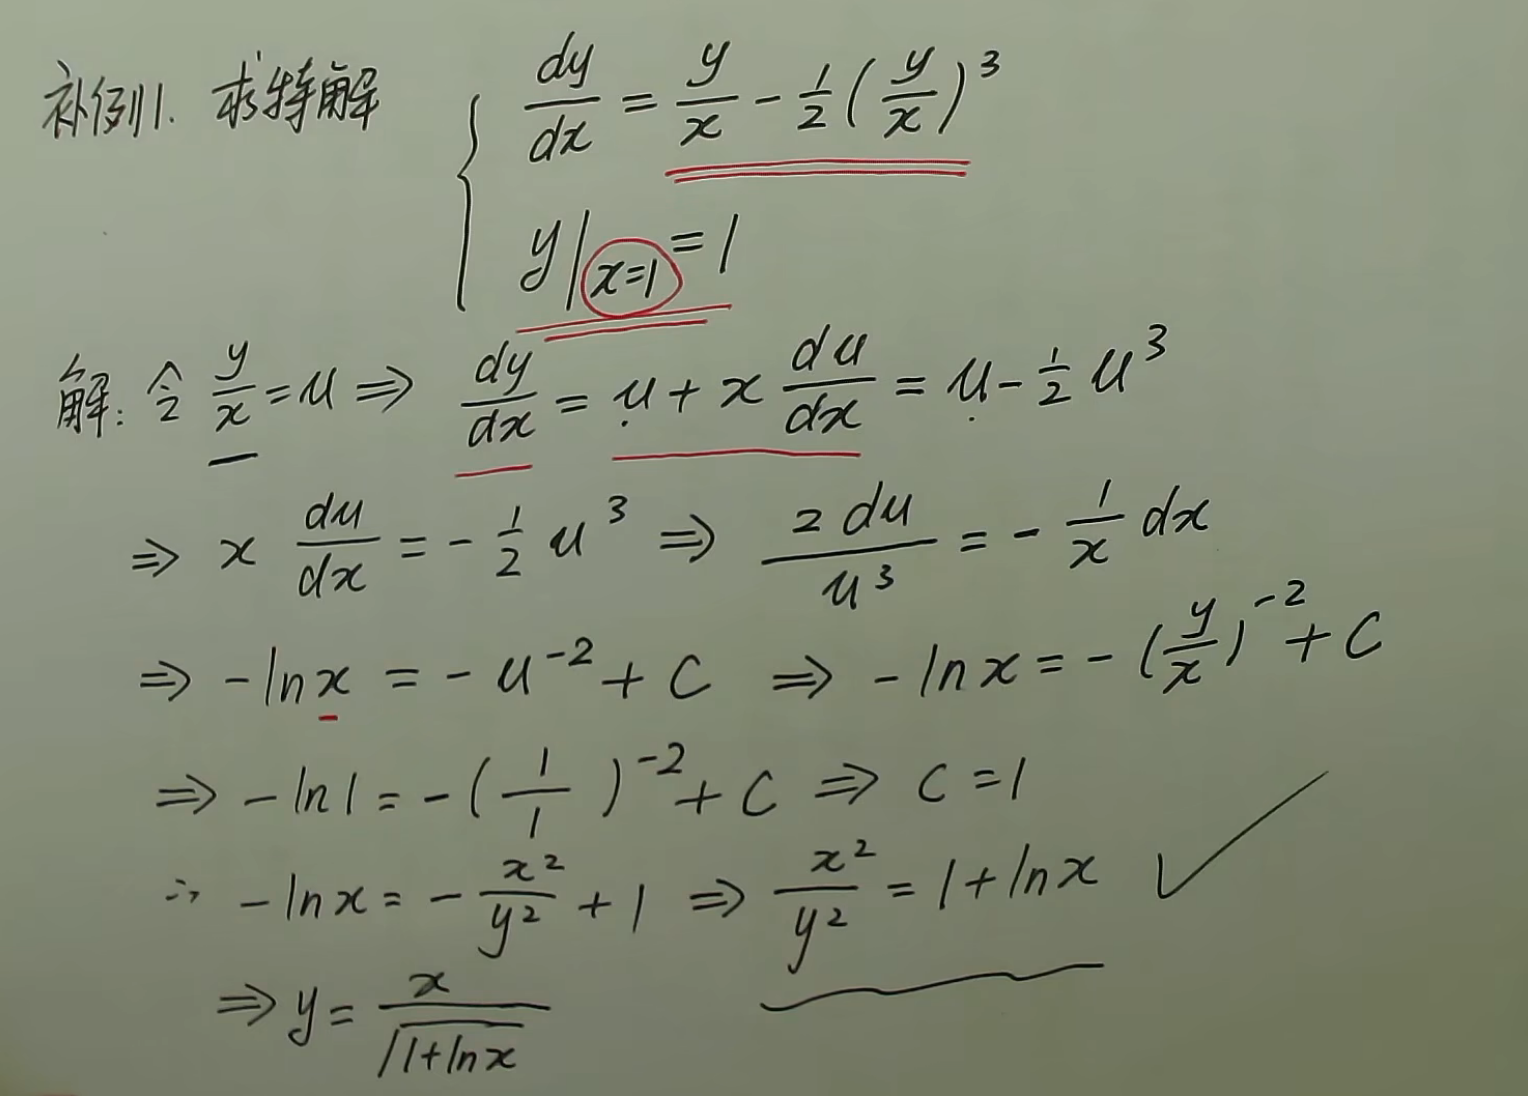 补例1. 求特解 { dy/dx = y/x - 1/2 (y/x)^3
y|x=1 = 1
解: 令 y/x = u ⇒ dy/dx = u + x du/dx = u - 1/2 u^3
⇒ x du/dx = - 1/2 u^3 ⇒ 2du/u^3 = - 1/x dx
⇒ -ln x = -u^-2 + C ⇒ -ln x = -(y/x)^-2 + C
⇒ -ln 1 = -(1/1)^-2 + C ⇒ C = 1
∴ -ln x = - x^2/y^2 + 1 ⇒ x^2/y^2 = 1 + ln x ✓
⇒ y = x/√(1+ln x)